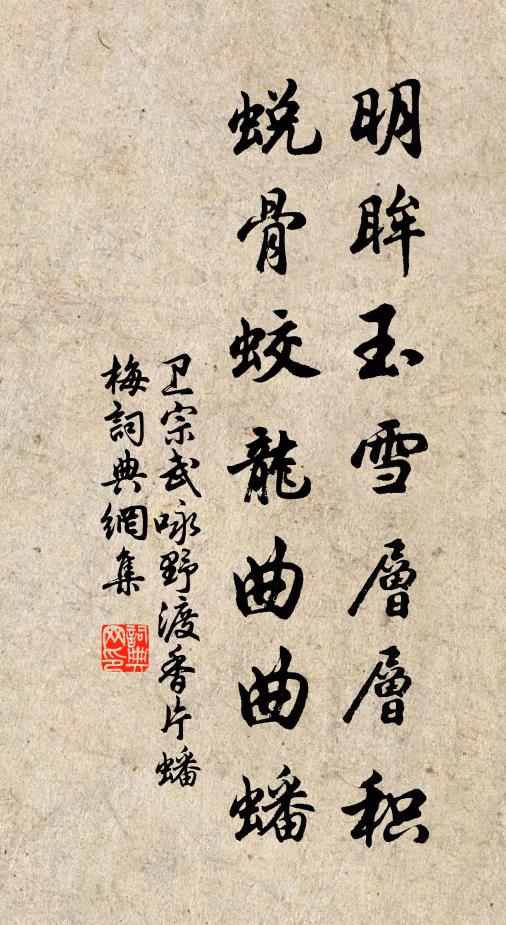 明眸玉雪層層积
蜕骨蛟龍曲曲蟠
卫宗武咏野渡香片蟠
梅詞典網集
詞典网印